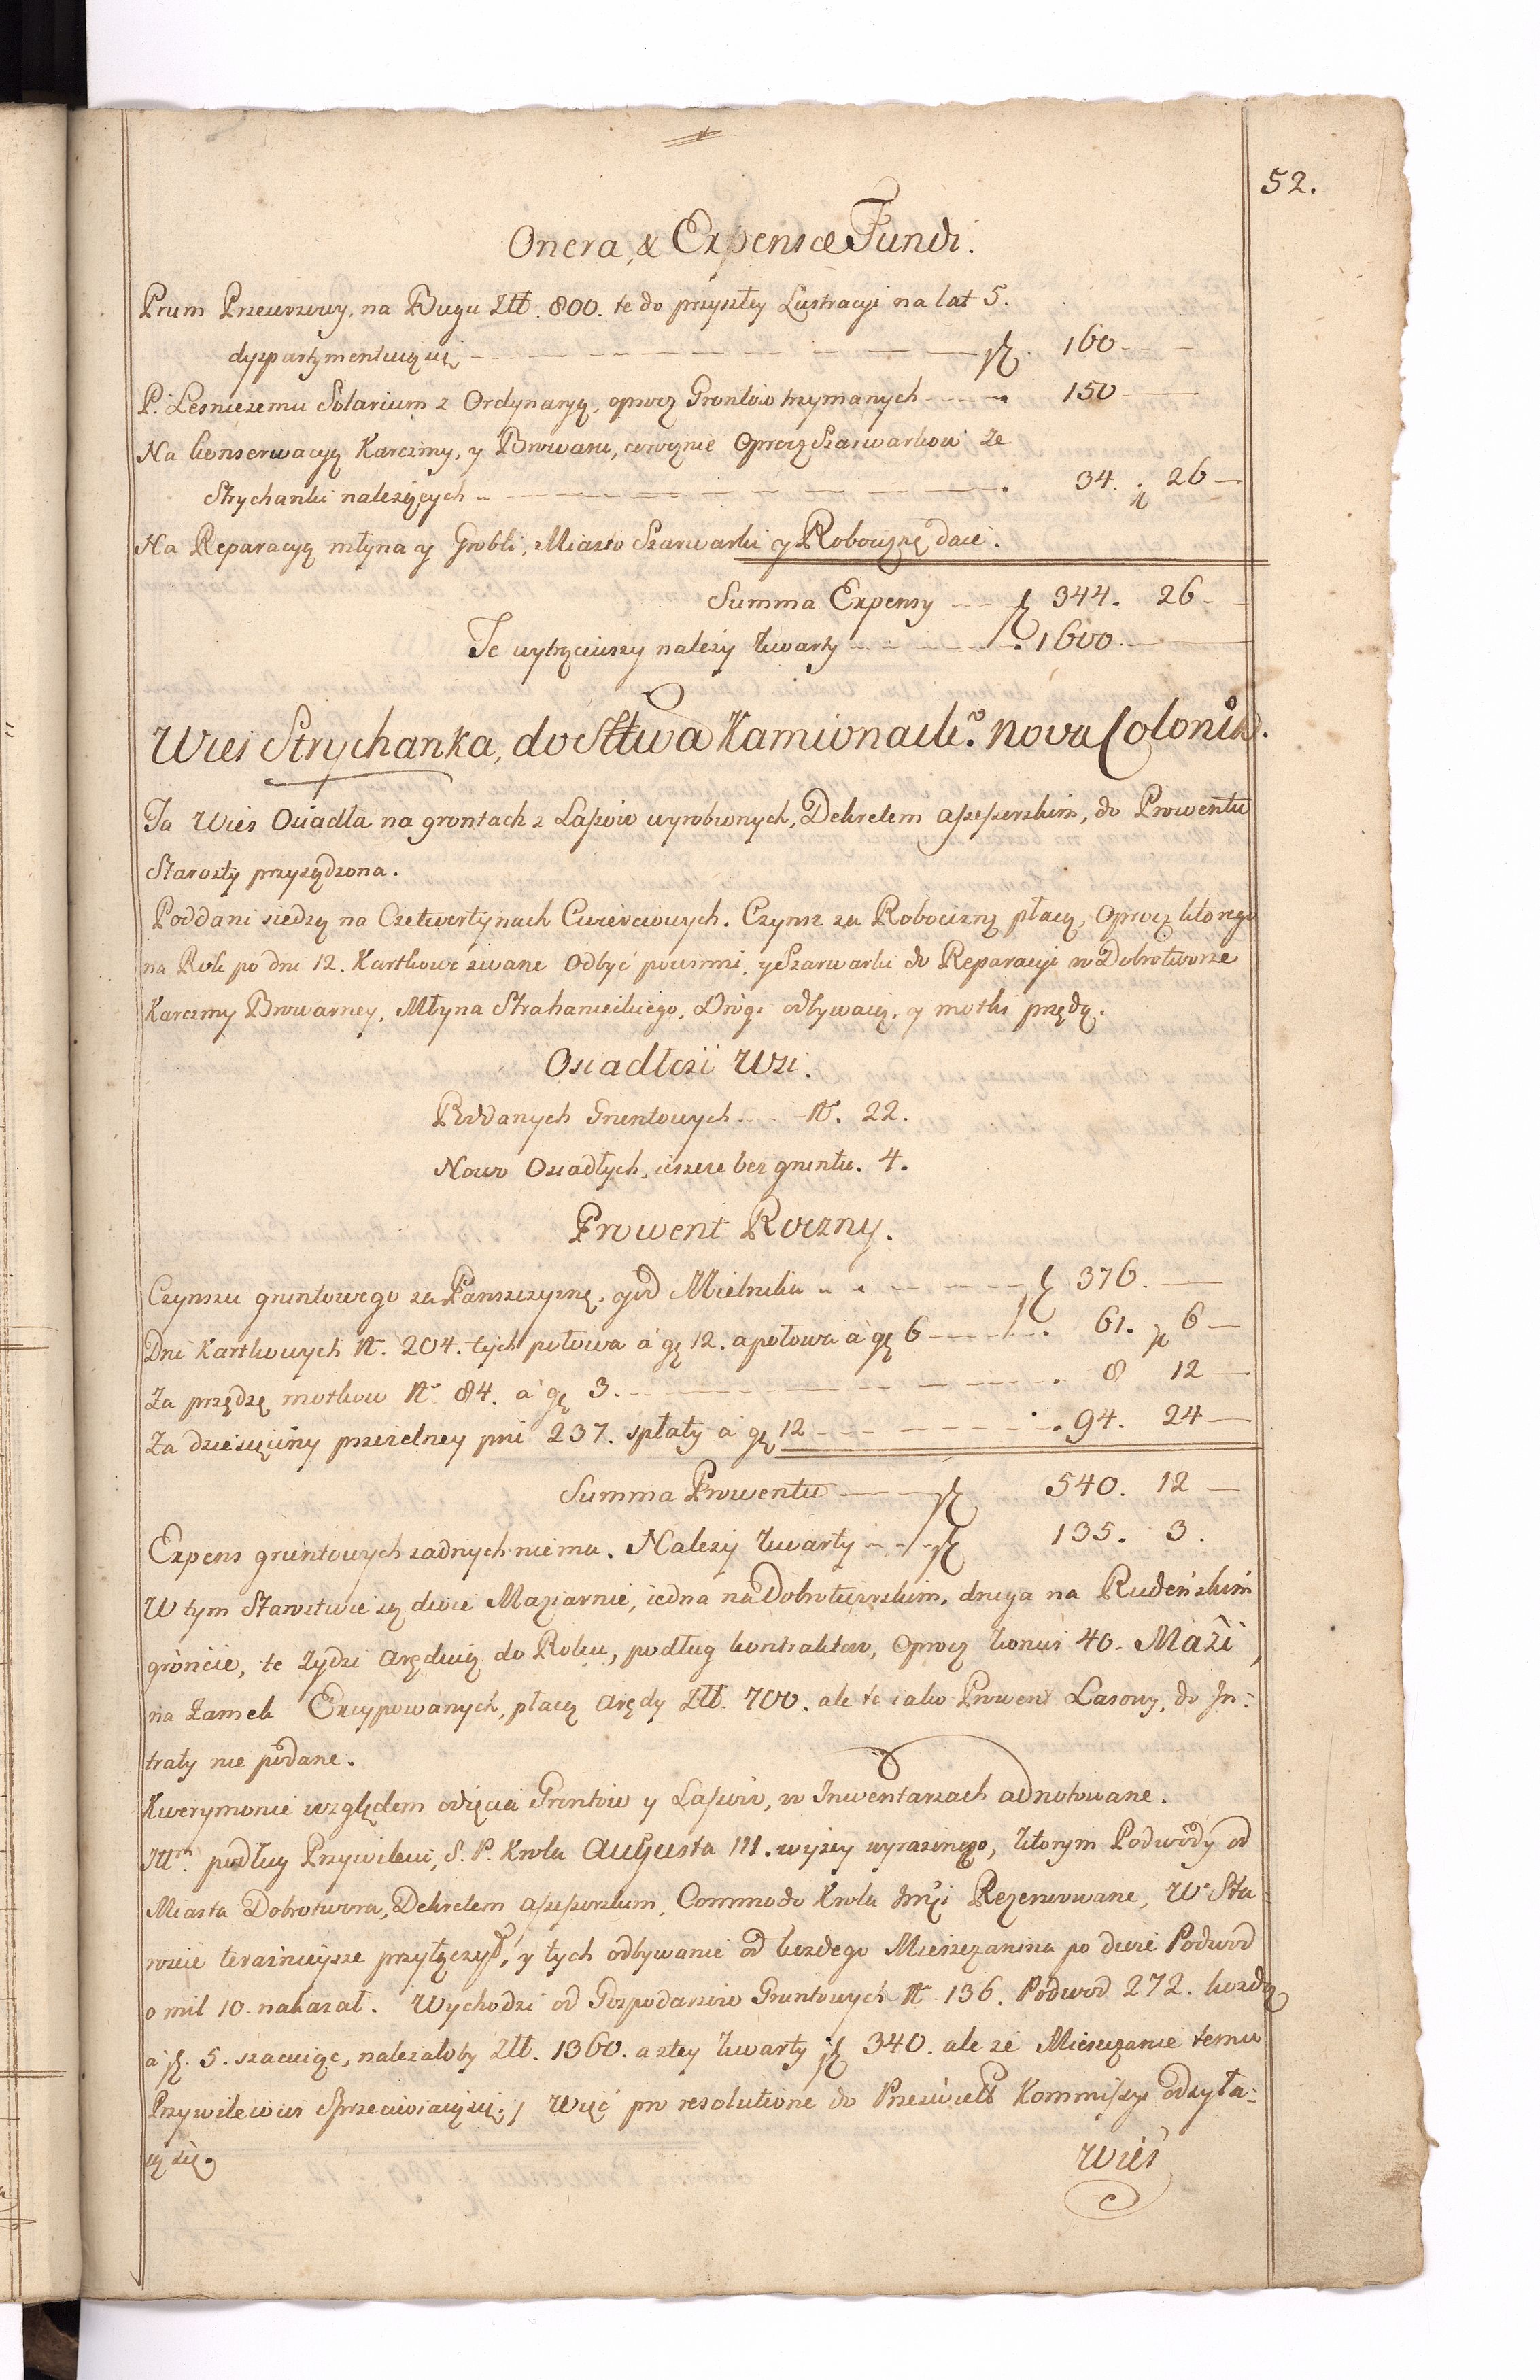 52.
Onera, & Expensæ Fundi.
Prum Przewozowy, na Bugu Złł. 800. te do przyszłey Lustracyi na lat 5.
dyspartymentuiąc się 160
P. Lesniczemu Solarium z Ordynaryą, oprocz Grontow trzymanych 150
Na konserwacyą Karczmy, y Browaru, corocznie Oprocz Szarwarkow ze
Strychanki należących 34. 26
Na Reparacyą młyna y Grobli, Miasto Szarwarki y Robociznę daie.
Summa Expensy 344. 26
Te wytrąciwszy należy kwarty 1600
Wies Strychanka, do Sttwa Kamionack.o nova Colonia.
Ta Wies Osiadła na grontach z Lassow wyrobionych, Dekretem assessorskim, do Prowentu
Starosty przysądzona.
Poddani siedzą na Czetwertynach Cwierciowych. Czynsz za Robociznę płacą, Oprocz ktorego
na Rok po dni 12. Kartkowe zwane Odbyć powinni, y Szarwarki do Reparacyi w Dobrotworze
Karczmy Browarney, Młyna Strahanieckiego, Drogi odbywaią, y motki przędą.
Osiadłość Wsi.
Poddanych Gruntowych N. 22.
Nowo Osiadłych, ieszcze bez gruntu. 4.
Prowent Roczny.
Czynszu gruntowego za Panszczyznę, y od Mielnika 376.
Dni Kartkowych N. 204. tych połowa á gr 12. a połowa á gr 6 61. 6
Za przędzę motkow N. 84. á gr 3. 8 12
Za dziesięciny pszczelney pni 237. spłaty á gr 12 94. 24
Summa Prowentu 540. 12
Expens gruntowych zadnych niema. Nalezy kwarty 135. 3.
W tym Starostwie są dwie Maziarnie, iedna na Dobrotworskim, druga na Rudeńskim
gróncie, te Zydzi Arędwią do Roku, podług kontraktow, oprocz konwi 40. Mazi,
na Zamek Excypowanych, płacą Arędy Złł. 700. ale te iako Prowent Lasowy, do In-
traty nie podane.
Kwerymonie względem odięcia Grontow y Lassow, w Inwentarzach adnotowane.
Jttm. podług Przywileiu, S. P. Krola Augusta III. wyżey wyrazonego, ktorym Podwody od
Miasta Dobrotwora, Dekretem assessorskim, Commodo Krola Jmci Rezerwowane, W. Sta-
roscie teraźnieysze przyłączył, y tych odbywanie od kozdego Mieszczanina po dwie Podwod
o mil 10. nakazał. Wychodzi od Gospodarzow Gruntowych N. 136. Podwod 272. kozdą
a zł. 5. szacuiąc, nalezałoby Złł. 1360. a ztey kwarty 340. ale ze Mieszczanie temu
Przywileiowi Sprzeciwiaią się; Więc pro resolutione do Przeświett Kommissyi odsyła-
ią się.
Wieś